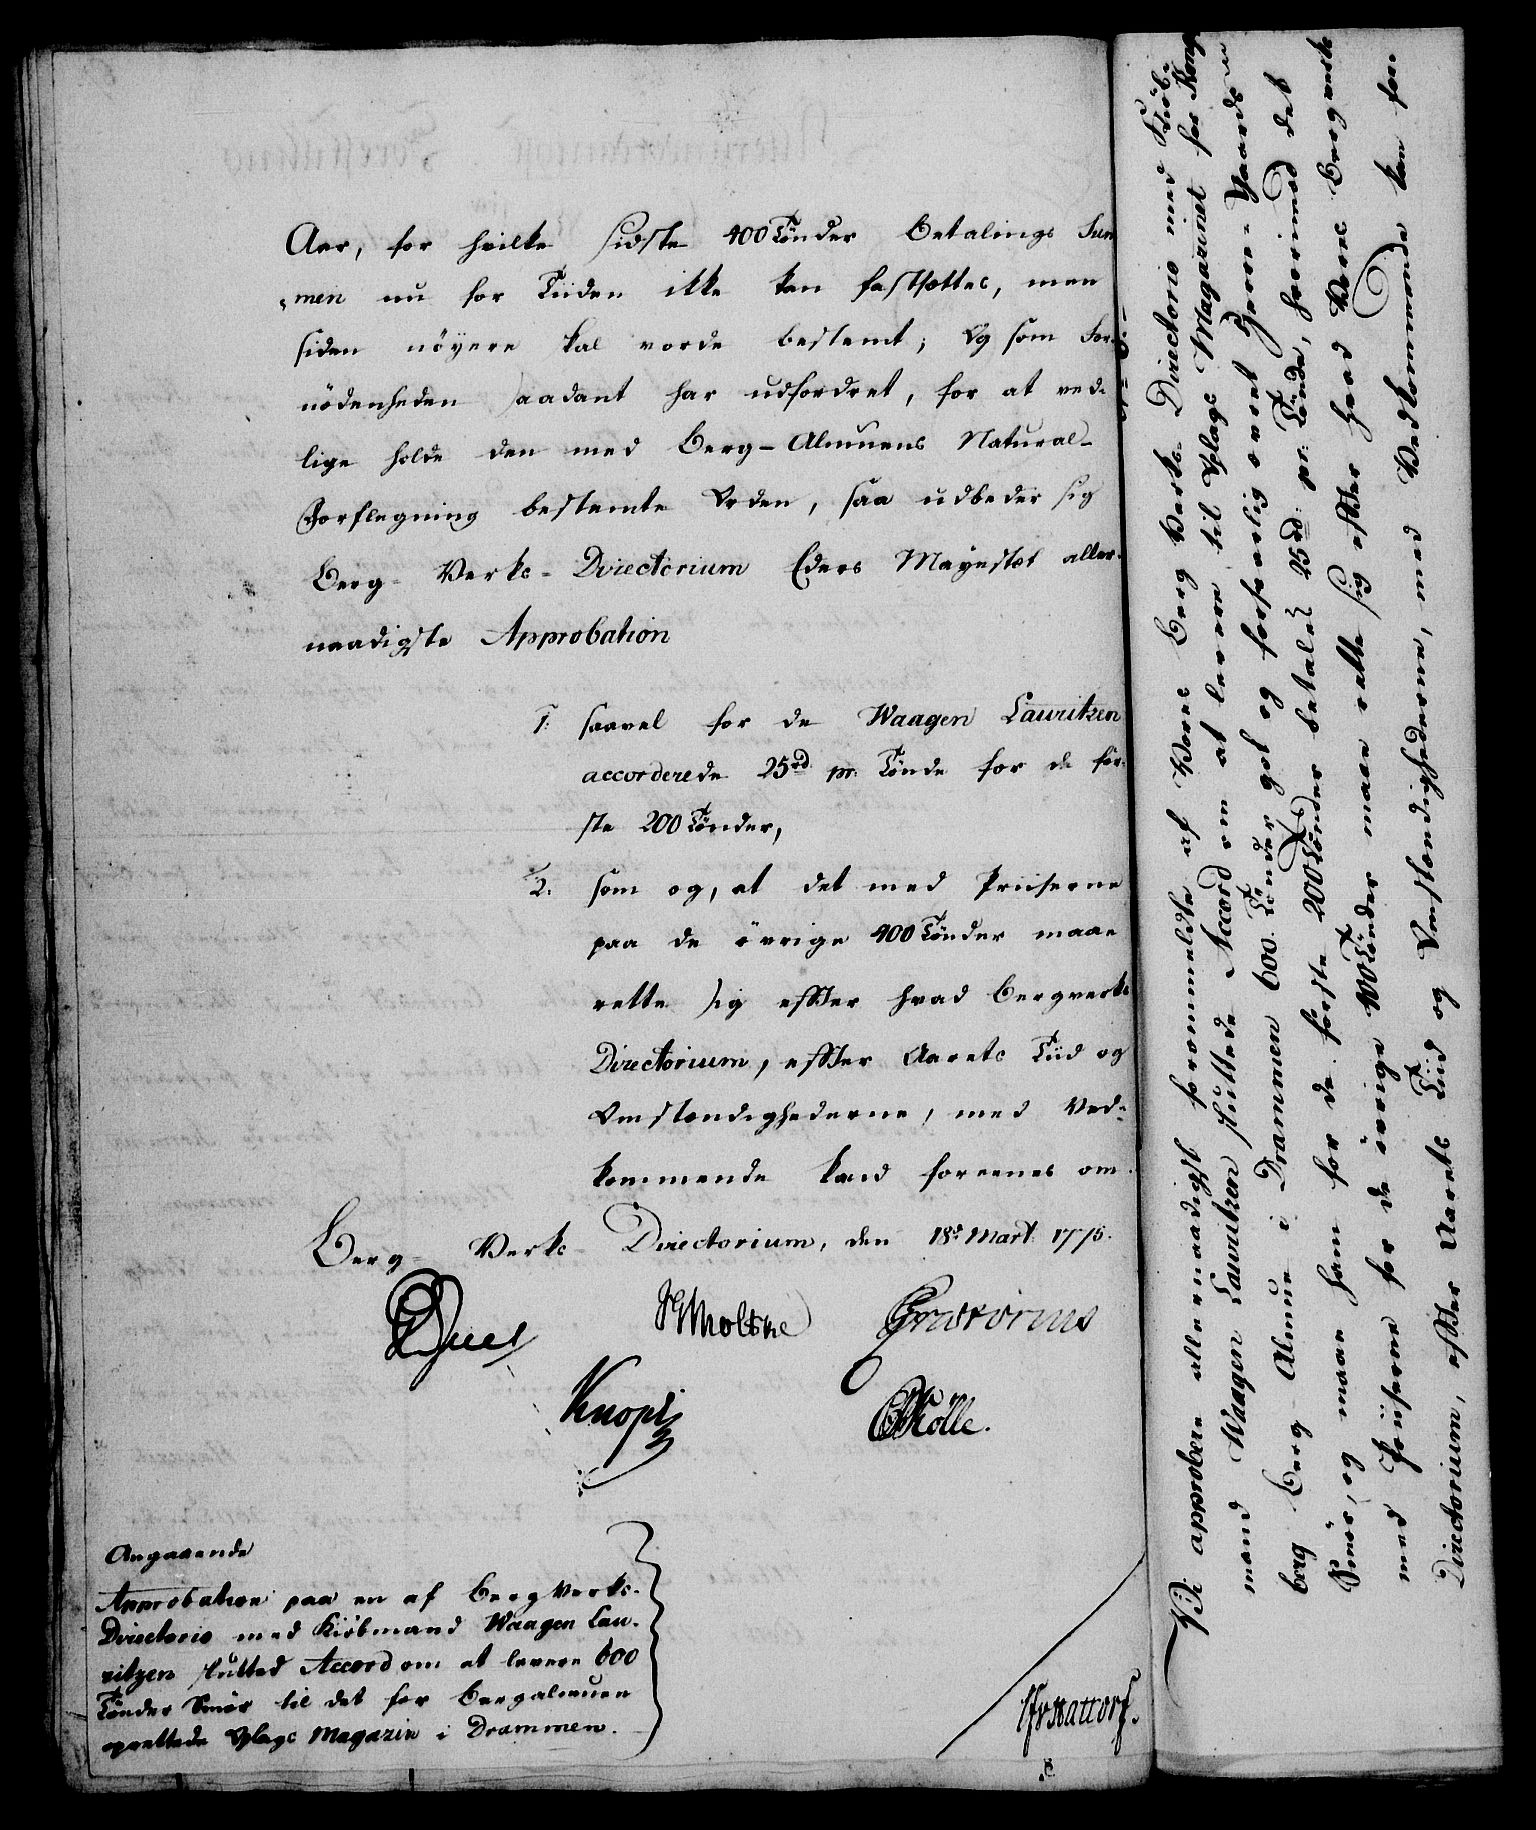 Aar, for hvilke sidste 400 Tønder Betalings Sum
men nu for Tiiden ikke kan fastsættes, men
siden nöyere skal vorde bestemt; Og som For-
nödenheden saadant har udfordret, for at ved-
lige holde den med Berg-Almuens Natural-
Forflegning bestemte Orden, saa udbeder sig
Berg-Verks-Directorium Eders Mayestæt aller-
naadigste Approbation
1. saavel for de Waagen Lauritzen
accorderede 25 rd. pr. Tönde for de för-
ste 200 Tönder,
2. som og, at det med Priiserne
paa de övrige 400 Tönder maae
rette sig efter hvad Bergverks
Directorium, efter Aarets Tiid og
Omstændighederne, med Ved-
kommende kand foreenes om.
Berg-Verks-Directorium, den 18de Mart 1775.
Juel
Moltke
Prætorius
Knoph
Holle.
Angaaende
Approbation paa en af BergVerks-
Directorio med Kiöbmand Waagen Lau-
ritzen sluttet Accord om at levere 600
Tönder Smör til det for Bergalmuen
oprettede Oplags Magazin i Drammen.
Vi approbere allernaadigst foranmeldte af Vores Berg Verks-Directorio med Kiöb-
mand Waagen Lauritzen sluttede Accord om at levere til Oplags Magazinet for Kongs-
berg Berg-Almue i Drammen 600 Tönder got og forsvarlig vraget Herre-Gaards
Smör, og maae ham for de förste 200 Tönder betales 25 rd. pr. Tönde, hvorimod det
med Priiserne for de övrige 400 Tönder maae rette sig efter hvad Vores Bergverks
Directorium, efter Aarets Tiid og Omstændighederne, med Vedkommende kan for-